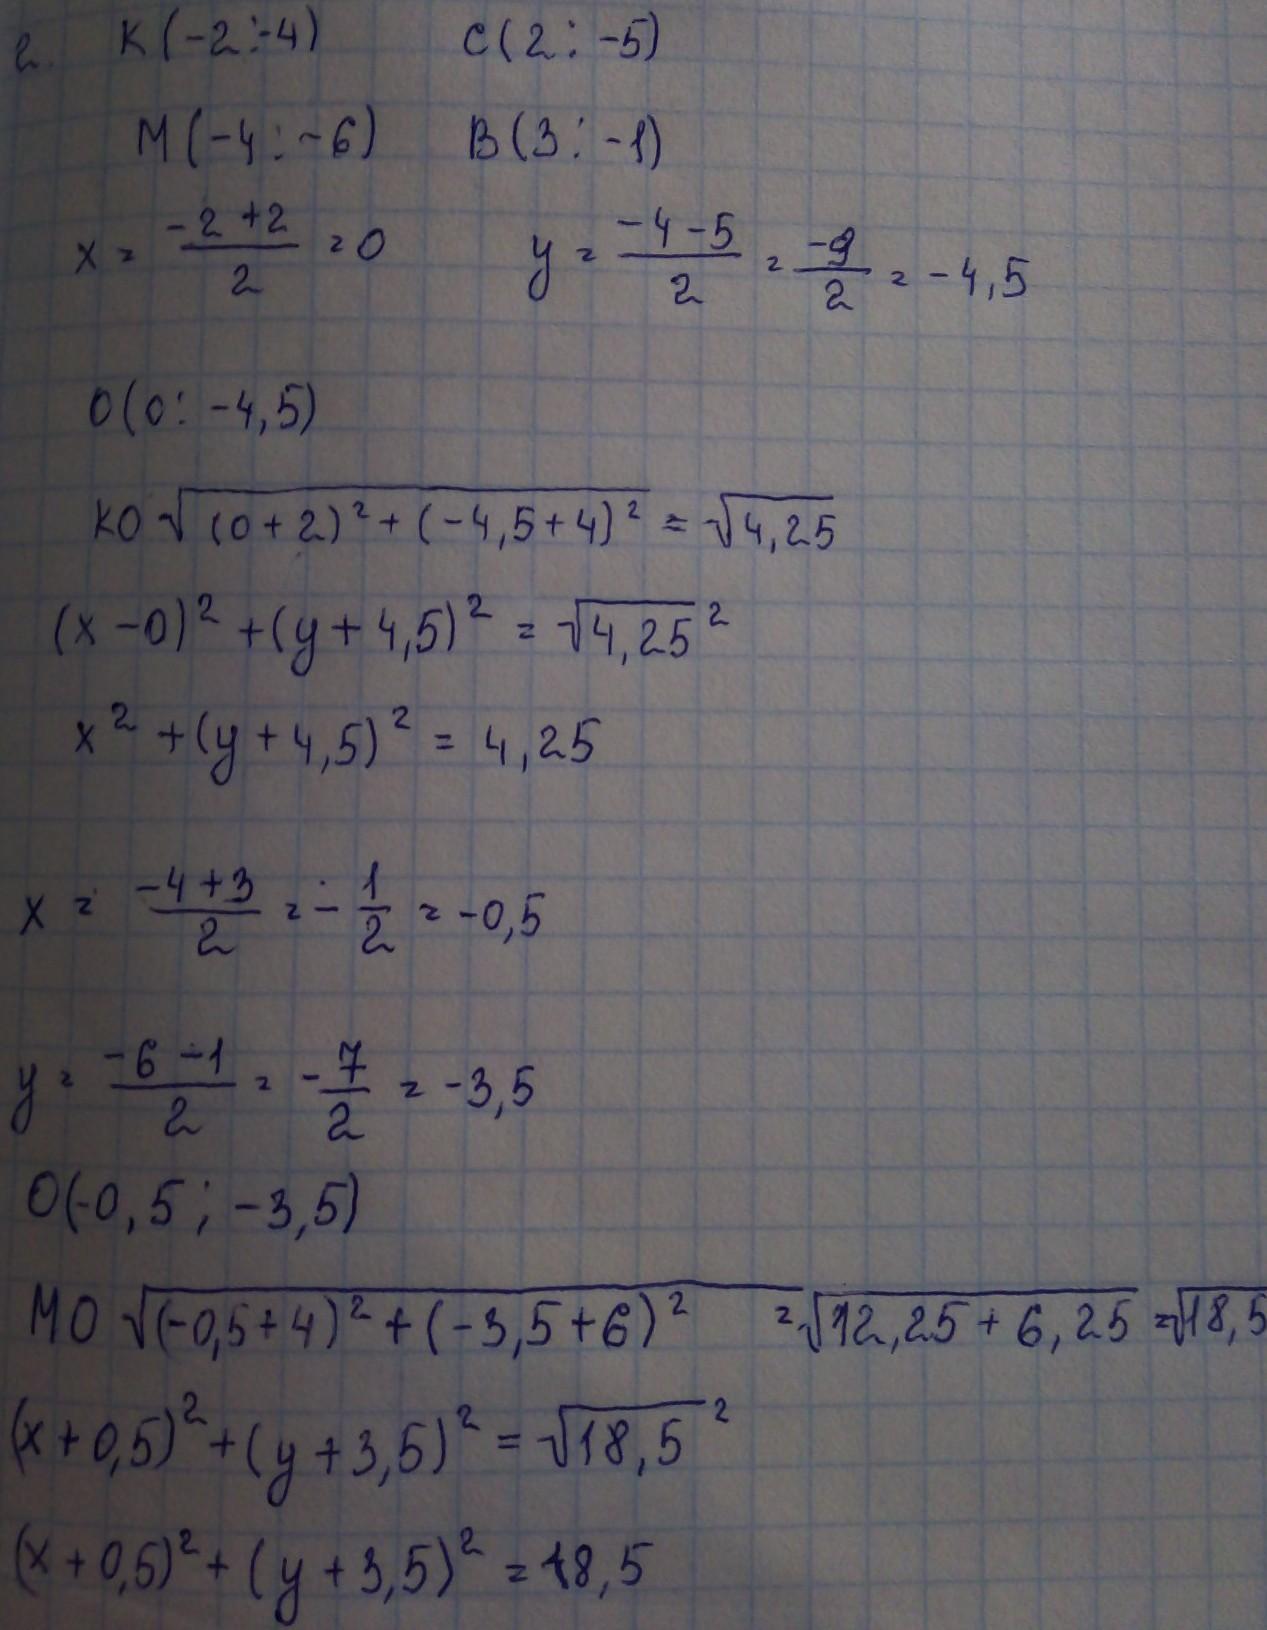 2. К(-2:-4) С(2:-5)
М(-4:-6) В(3:-1)
x = (-2+2)/2 = 0 y = (-4-5)/2 = -9/2 = -4,5
О(0:-4,5)
КО √((0+2)² + (-4,5+4)²) = √4,25
(x-0)² + (y+4,5)² = √4,25²
x² + (y+4,5)² = 4,25
x = (-4+3)/2 = -1/2 = -0,5
y = (-6-1)/2 = -7/2 = -3,5
О(-0,5; -3,5)
МО √((-0,5+4)² + (-3,5+6)²) = √(12,25+6,25) = √18,5
(x+0,5)² + (y+3,5)² = √18,5²
(x+0,5)² + (y+3,5)² = 18,5